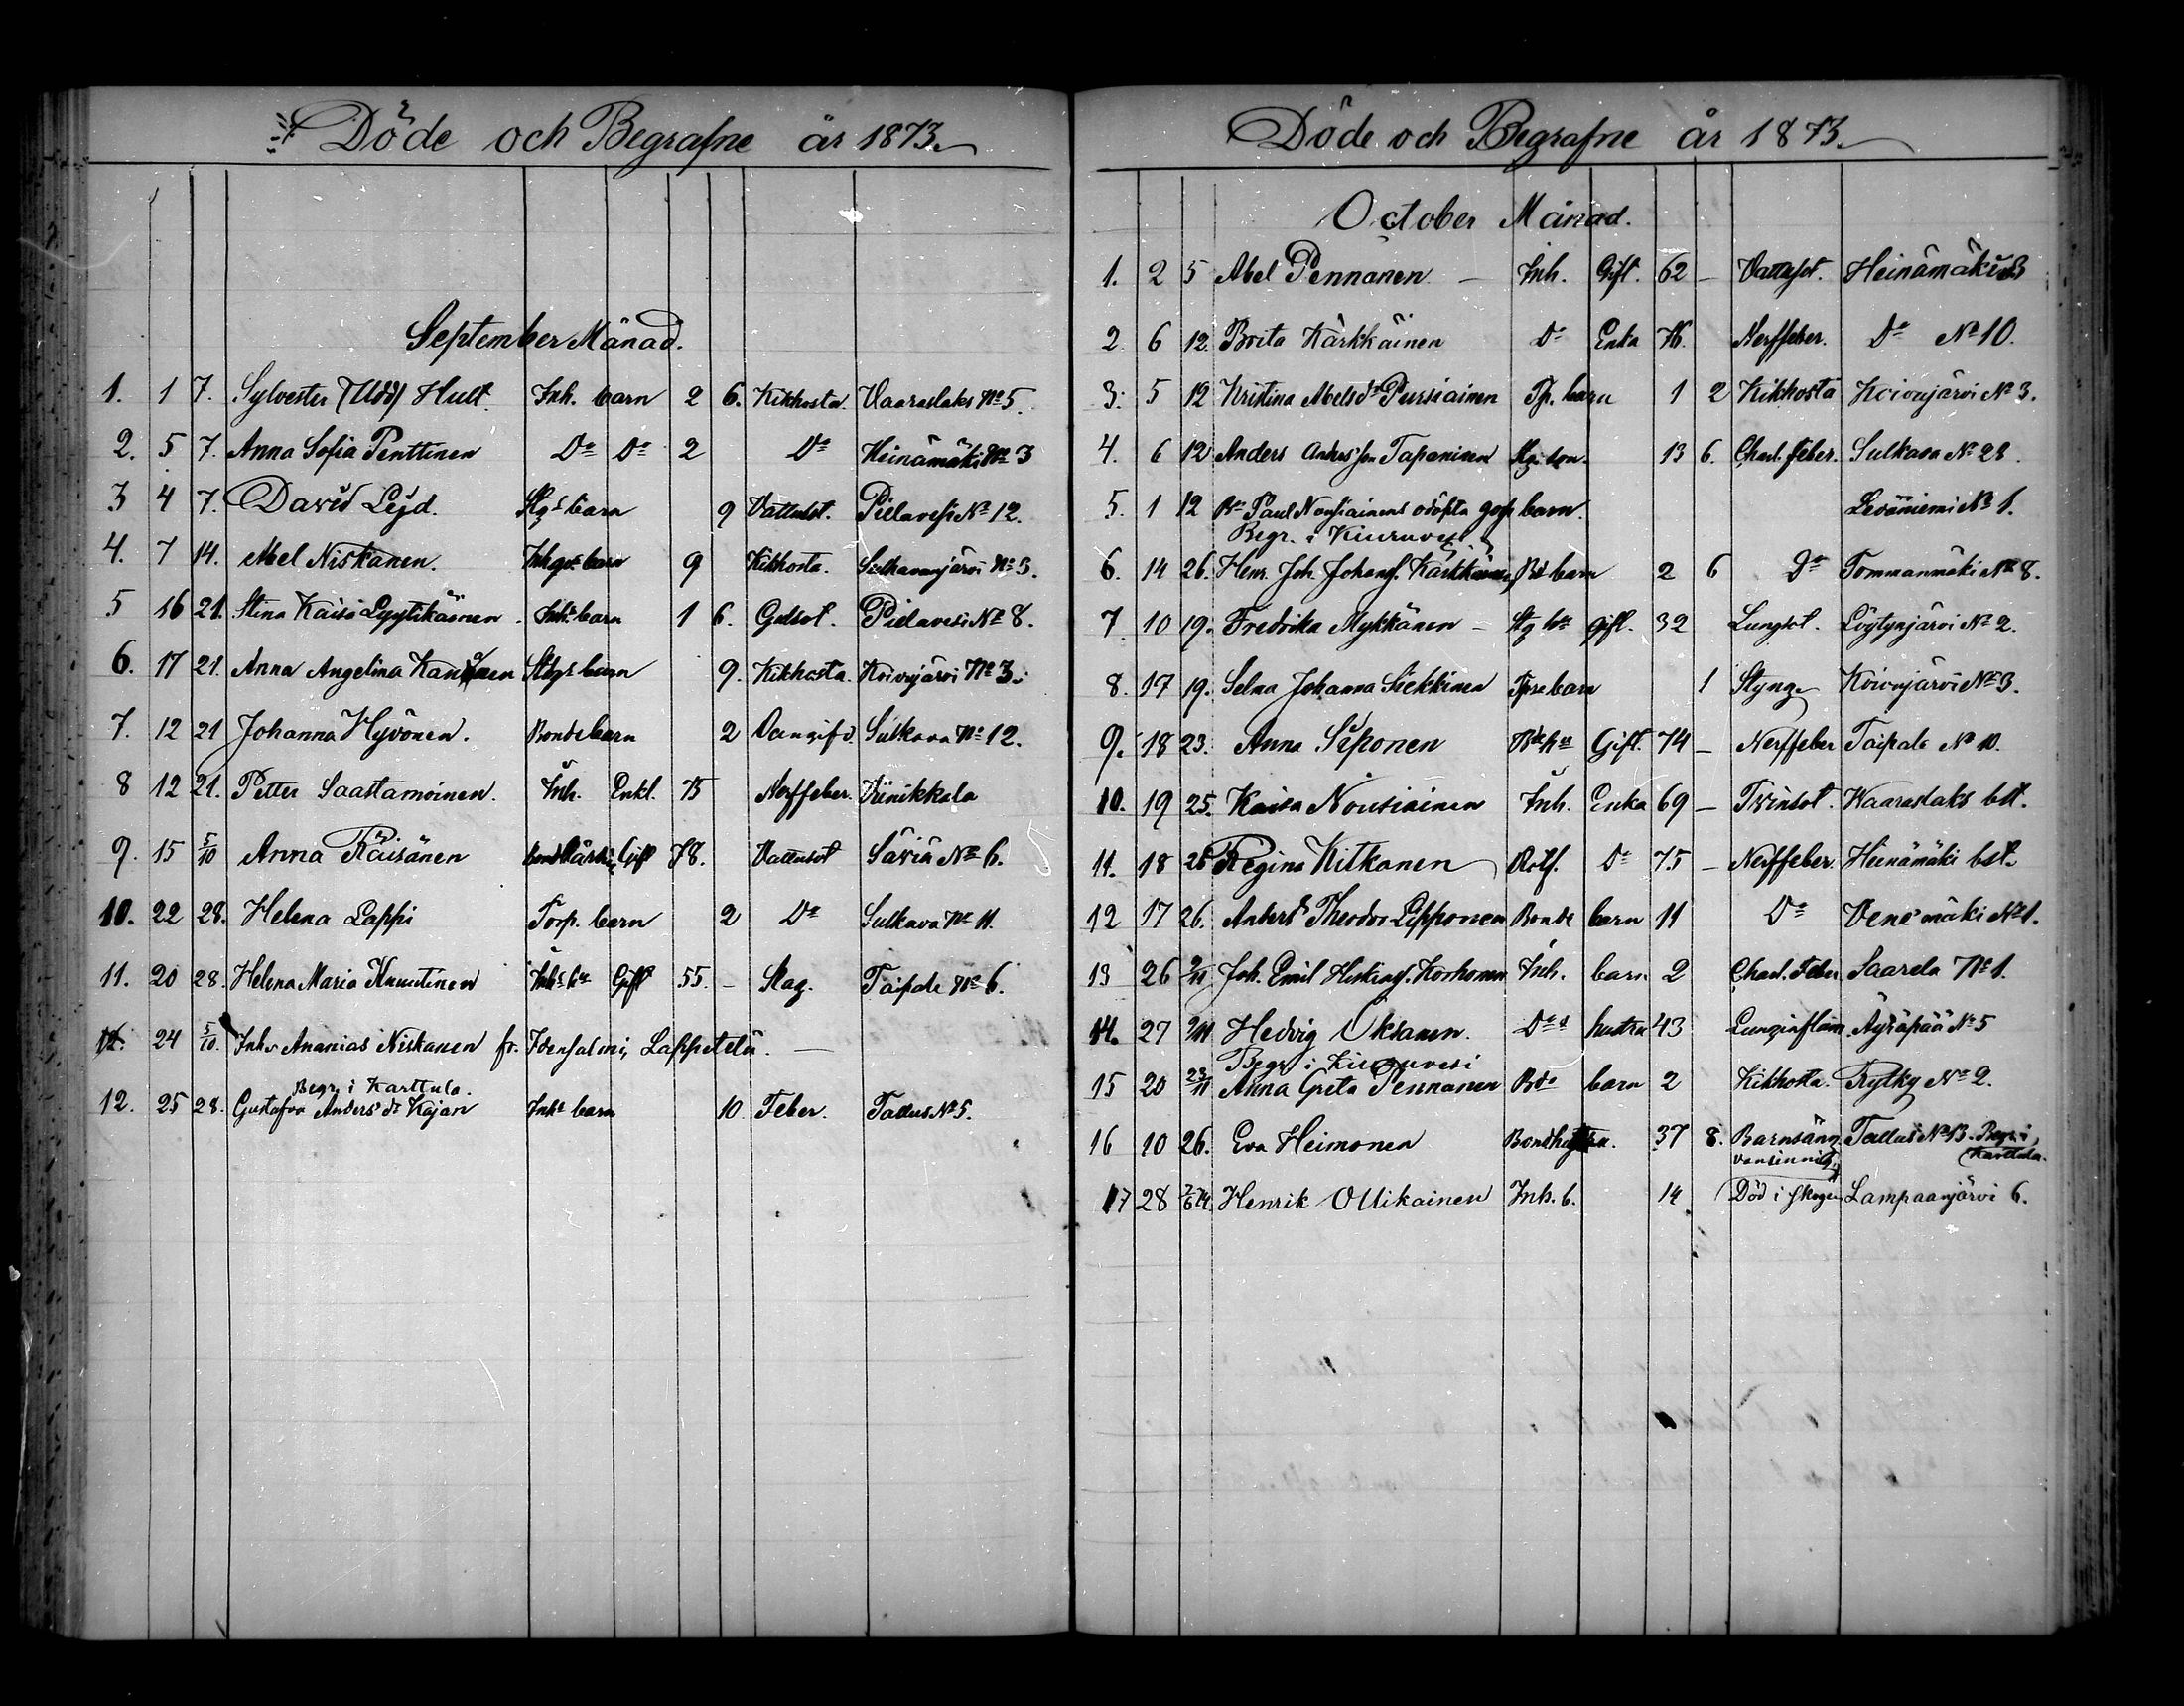 Döde och Begrafne år 1873.
September Månad.
1. 1 7. Sylvester Hult. Inh. barn 2 6. Kikhosta. Vaaraslaks No 5.
2. 5 7. Anna Sofia Penttinen Do Do 2 Do Heinämäki No 3
3 4 7. David Lejd. Stgs barn 9 Vattusot. Pielavesi No 12.
4. 7 14. Abel Niskanen. barn 9 Kikhosta. Sulkavanjärvi No 3.
5 16 21. Stina Kaisa Lyytikäinen. Inhs barn 1 6. Gulsot. Pielavesi No 8.
6. 17 21. Anna Angelina barn 9. Kikhosta. Koivujärvi No 3.
7. 12 21 Johanna Hyvönen. Bonde barn 2 Sulkava No 12.
8 12 21. Petter Saastamoinen. Inh. Enkl. 75 Nerffeber. Viinikkala
9. 15 5/10 Anna Räisänen Gift 78. Vattusot Säviä No 6.
10. 22 28. Helena Lappi Torp. barn 2 Do Sulkava No 11.
11. 20 28. Helena Maria Knuutinen Inhs hu Gift 55. – Slag. Taipale No 6.
12. 24 5/10. Inh. Ananias Niskanen fr. Idensalmi, Lappetelä. —
Begr. i Karttula.
12. 25 28. Gustafva Anders dr Kajan Inhs barn 10 Feber. Tallus No 5.
Döde och Begrafne år 1873.
October Månad.
1. 2 5 Abel Pennanen – Inh. Gift. 62 – Vattusot. Heinämäki 3
2. 6 12. Brita Kärkkäinen Do Enka 76. Nerffeber. Do No 10.
3. 5 12 Kristina Abelsdr Pursiainen Tp. barn 1 2 Kikhosta Koivujärvi No 3.
4. 6 12 Anders Anders son Tapaninen son. 13 6. Charl. feber. Sulkava No 28.
5. 1 12 Paul Nousiainens odöpta barn. Leväniemi No 1.
Begr. i Kiuruvesi
6. 14 26. Henr. Joh. Johans. Kärkkäinen Bd barn 2 6 Do Tommanmäki No 8.
7. 10 19. Fredrika Mykkänen – Stg hu gift. 32 Lungsot. Löytynjärvi No 2.
8. 17 19. Selma Johanna Siekkinen Tpre barn 1 Styng. Koivujärvi No 3.
9. 18 23. Anna Säponen Gift. 74 – Nerffeber Taipale No 10.
10. 19 25. Kaisa Nousiainen Inh. Enka 69 – Tvinsot. Waaraslaks bst.
11. 18 26 Regina Kitkanen Rotf. Do 75 – Nerffeber. Heinämäki bst.
12 17 26. Anders Theodor Lipponen Bonde barn 11 Do Venemäki No 1.
13 26 2/11 Joh. Emil Korhonen Inh. barn 2 Charl. Feber Saarela No 1.
14. 27 2/11 Hedvig Oksanen. Dos hustru 43 Lunginflam. Äyräpää No 5
Begr. i Kiuruvesi
15 20 23/11 Anna Greta Pennanen Bde barn 2 Kikhosta. Rytky No 2.
16 10 26. Eva Heimonen Bondhustru. 37 8. Barnsäng. Tallus No 13. Begr. i
vansinnig Karttula.
17 28 7/6 74. Henrik Ollikainen Inh. b. 14 (Död i skogen Lampaanjärvi 6.